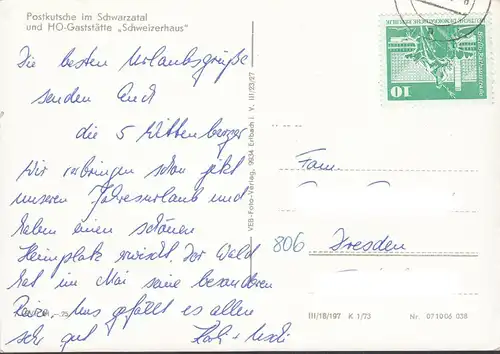 Postkutsche im Schwarzatal
und HO-Gaststätte „Schweizerhaus"
Die besten Urlaubsgrüße
senden Euch
die 5 Wittenberger
Wir verbringen schon jetzt
unseren Jahresurlaub und
haben einen schönen
Ferienplatz erwischt. Der Wald
hat im Mai seine besonderen
Reize. Uns gefällt es allen
sehr gut
VEB-Foto-Verlag, 9934 Erlbach i. V. III/23/27
10
DEUTSCHE DEMOKRATISCHE REPUBLIK
Fam.
806 Dresden
III/18/197 K 1/73 Nr. 071906 038